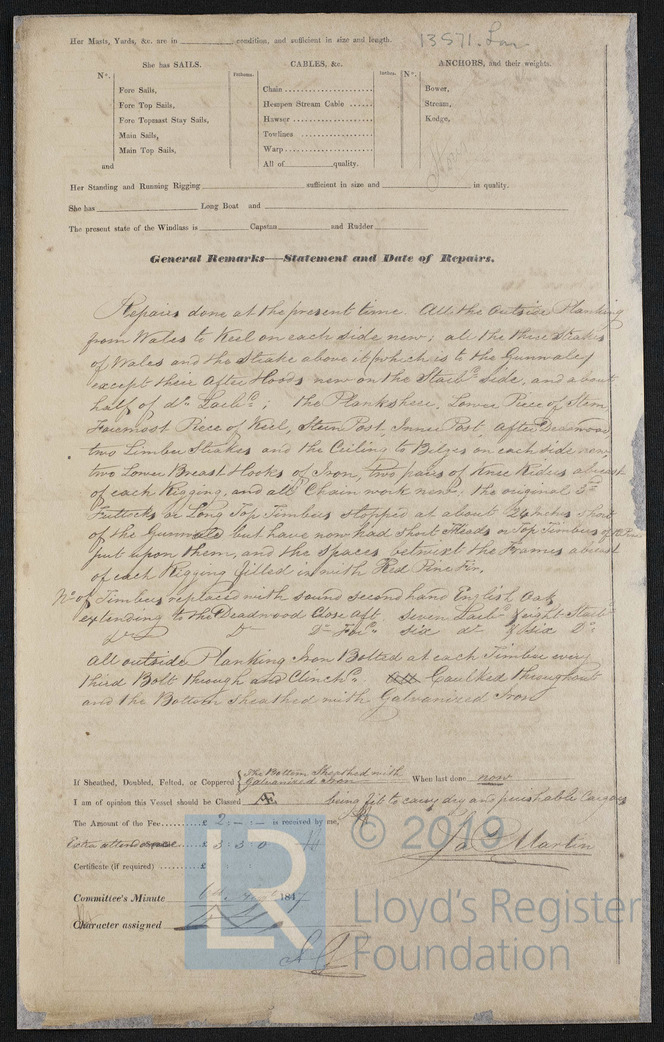 Her Masts, Yards, &c. are in condition, and sufficient in size and length. 13571. Lon
She has SAILS. CABLES, &c. ANCHORS, and their weights.
N°. Fathoms. Inches. N°.
Fore Sails, Chain Bower,
Fore Top Sails, Hempen Stream Cable Stream,
Fore Topmast Stay Sails, Hawser Kedge,
Main Sails, Towlines
Main Top Sails, Warp
and All of quality.
Her Standing and Running Rigging sufficient in size and in quality.
She has Long Boat and
The present state of the Windlass is Capstan and Rudder
General Remarks—Statement and Date of Repairs.
Repairs done at the present time. All the Outside Planking
from Wales to Keel on each side new; all the three Strakes
of Wales and the Strake above it (which is to the Gunwale)
except their After Hoods new on the Starbd. side, and about
half of do. Larbd.; the Planksheer, Lower Piece of Stem
Foremost Piece of Keel, Stern Post, Inner Post, After Deadwood
two Limber Strakes and the Ceiling to Bilges on each side new
two Lower Breast Hooks of Iron, two pairs of Knee Riders abreast
of each Rigging, and all Chain work new; the original
Futtocks or Long Top Timbers stopped at about 24 inches short
of the Gunwale but have now had Short Heads or Top Timbers of
put upon them, and the spaces betwixt the Frames abreast
of each Rigging filled in with Red Pine Fir,
No. of Timbers replaced with sound second hand English Oak
extending to the Deadwood Close Aft seven Larbd. & eight Starbd.
Do. Do. six do. & six Do.
All outside Planking Iron Bolted at each Timber every
third Bolt through and Clinchd. Caulked throughout
and the Bottom Sheathed with Galvanized Iron
If Sheathed, Doubled, Felted, or Coppered { The Bottom Sheathed with Galvanized Iron When last done now
I am of opinion this Vessel should be Classed Æ being fit to carry dry and perishable Cargoes
The Amount of the Fee £ 2 : - : - is received by me,
Extra attendance £ 3 : 3 : 0 Martin
Certificate (if required) £
Committee's Minute 6th 184
Character assigned
© 2019
LR
Lloyd's Register
Foundation